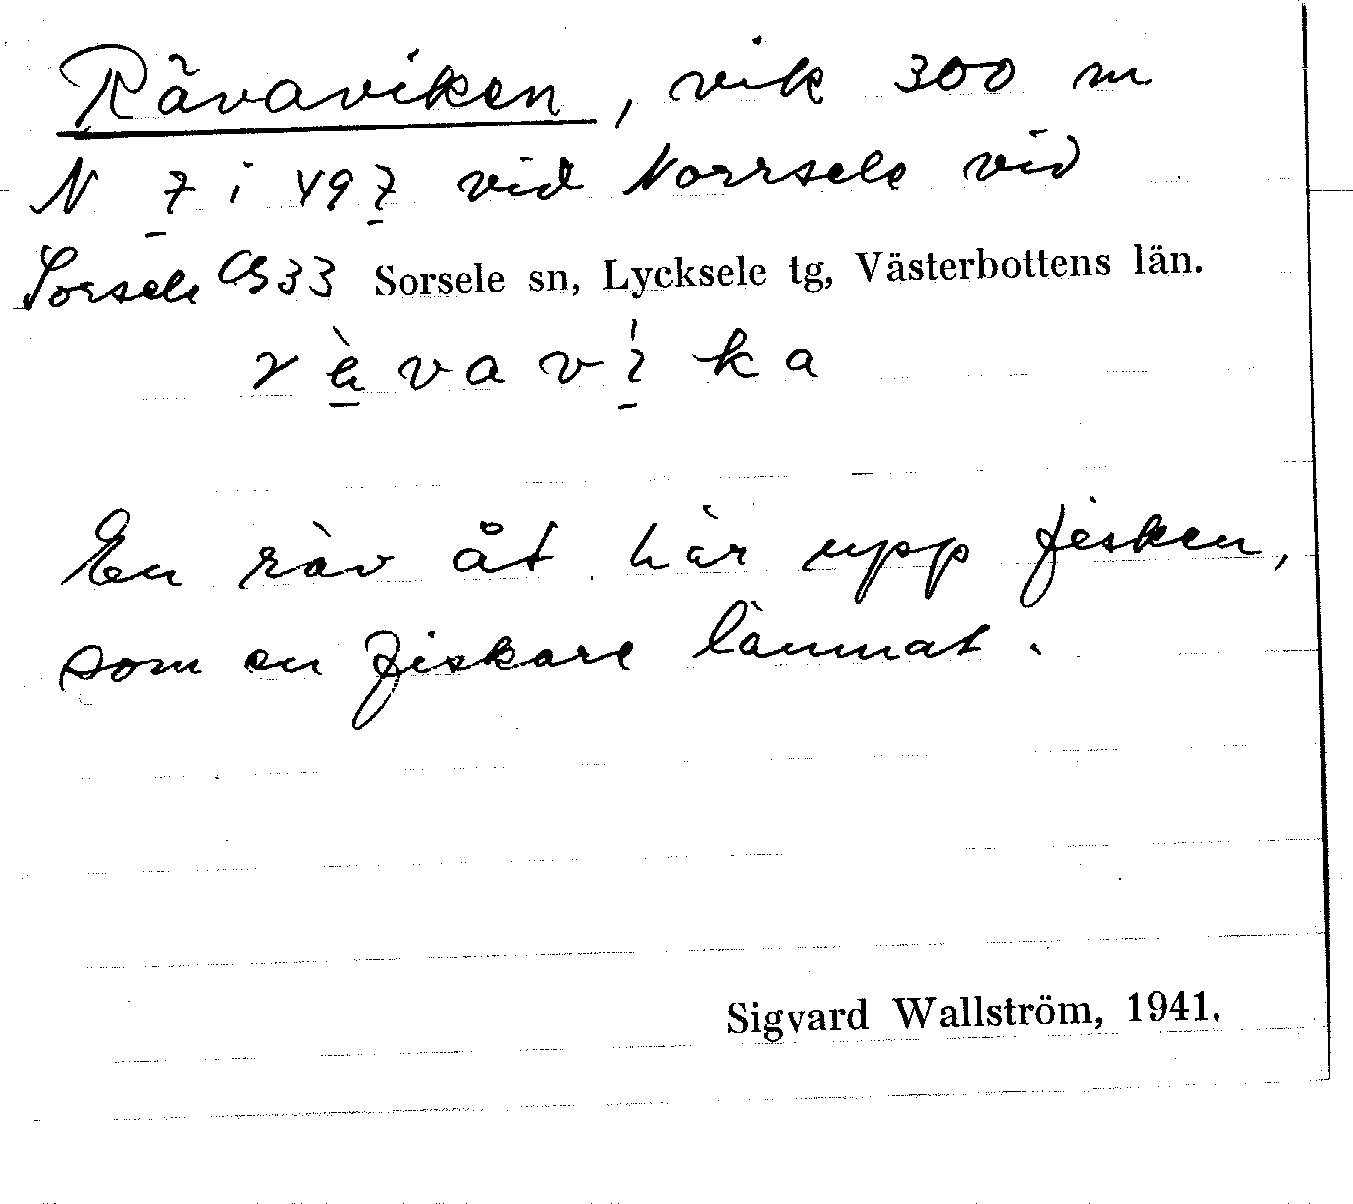 Rävaviken, vik 300 m
N 7 i 497 vid Norrsele vid
Sorsele Cb 33 Sorsele sn, Lycksele tg, Västerbottens län.
rä̀vavíka
En räv åt här upp fisken,
som en fiskare lämnat.
Sigvard Wallström, 1941.